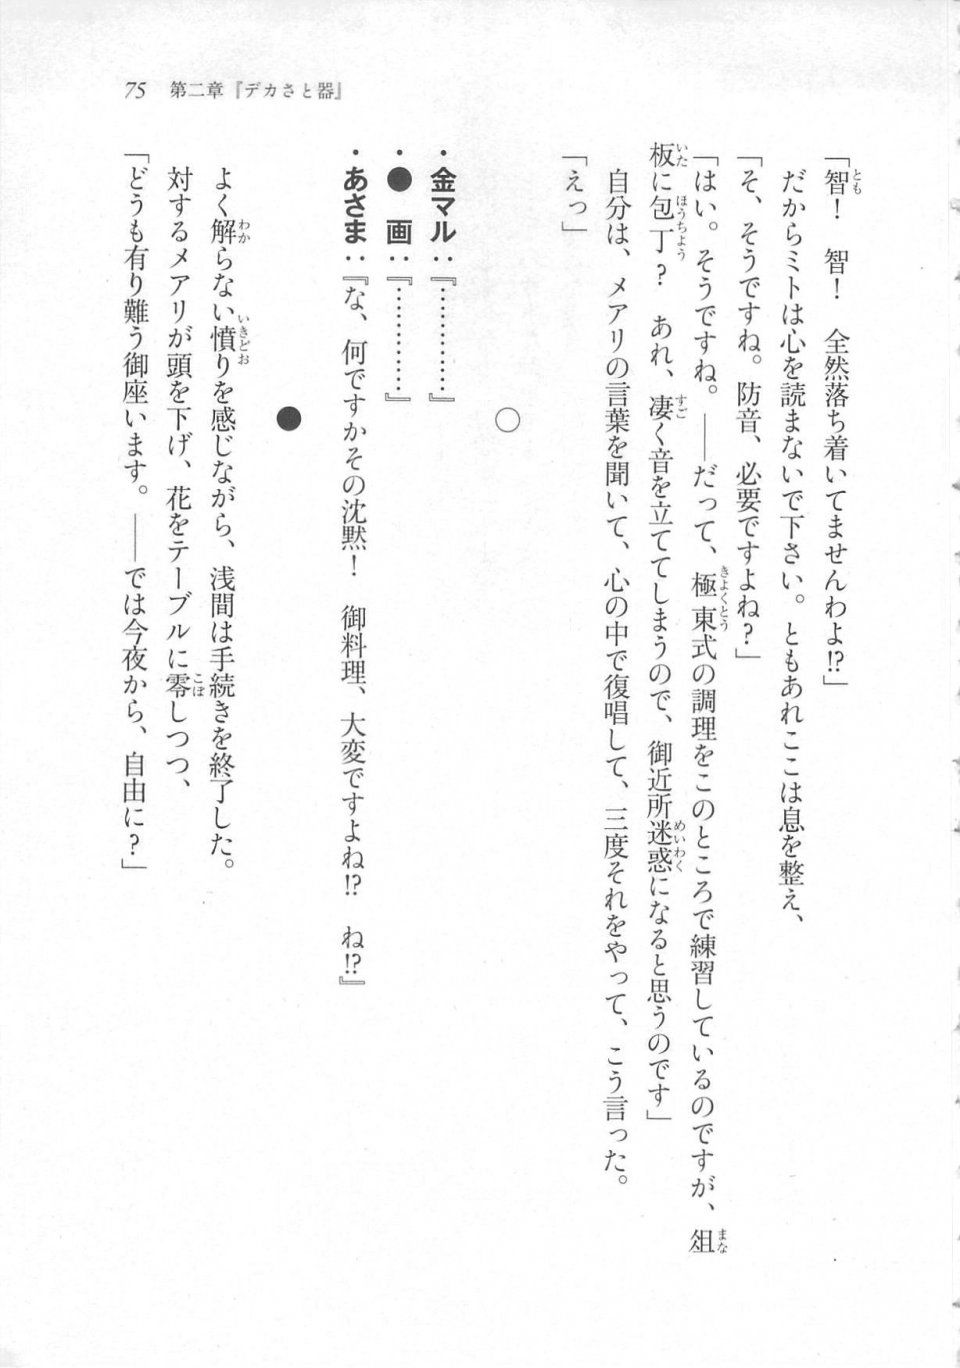 75　第二章『デカさと器』
「智！　智！　全然落ち着いてませんわよ!?」
だからミトは心を読まないで下さい。ともあれここは息を整え、
「そ、そうですね。防音、必要ですよね？」
「はい。そうですね。――だって、極東式の調理をこのところで練習しているのですが、俎
板に包丁？　あれ、凄く音を立ててしまうので、御近所迷惑になると思うのです」
自分は、メアリの言葉を聞いて、心の中で復唱して、三度それをやって、こう言った。
「えっ」
○
・金マル：『…………』
・●　画：『…………』
・あさま：『な、何ですかその沈黙！　御料理、大変ですよね!?　ね!?』
●
よく解らない憤りを感じながら、浅間は手続きを終了した。
対するメアリが頭を下げ、花をテーブルに零しつつ、
「どうも有り難う御座います。――では今夜から、自由に？」